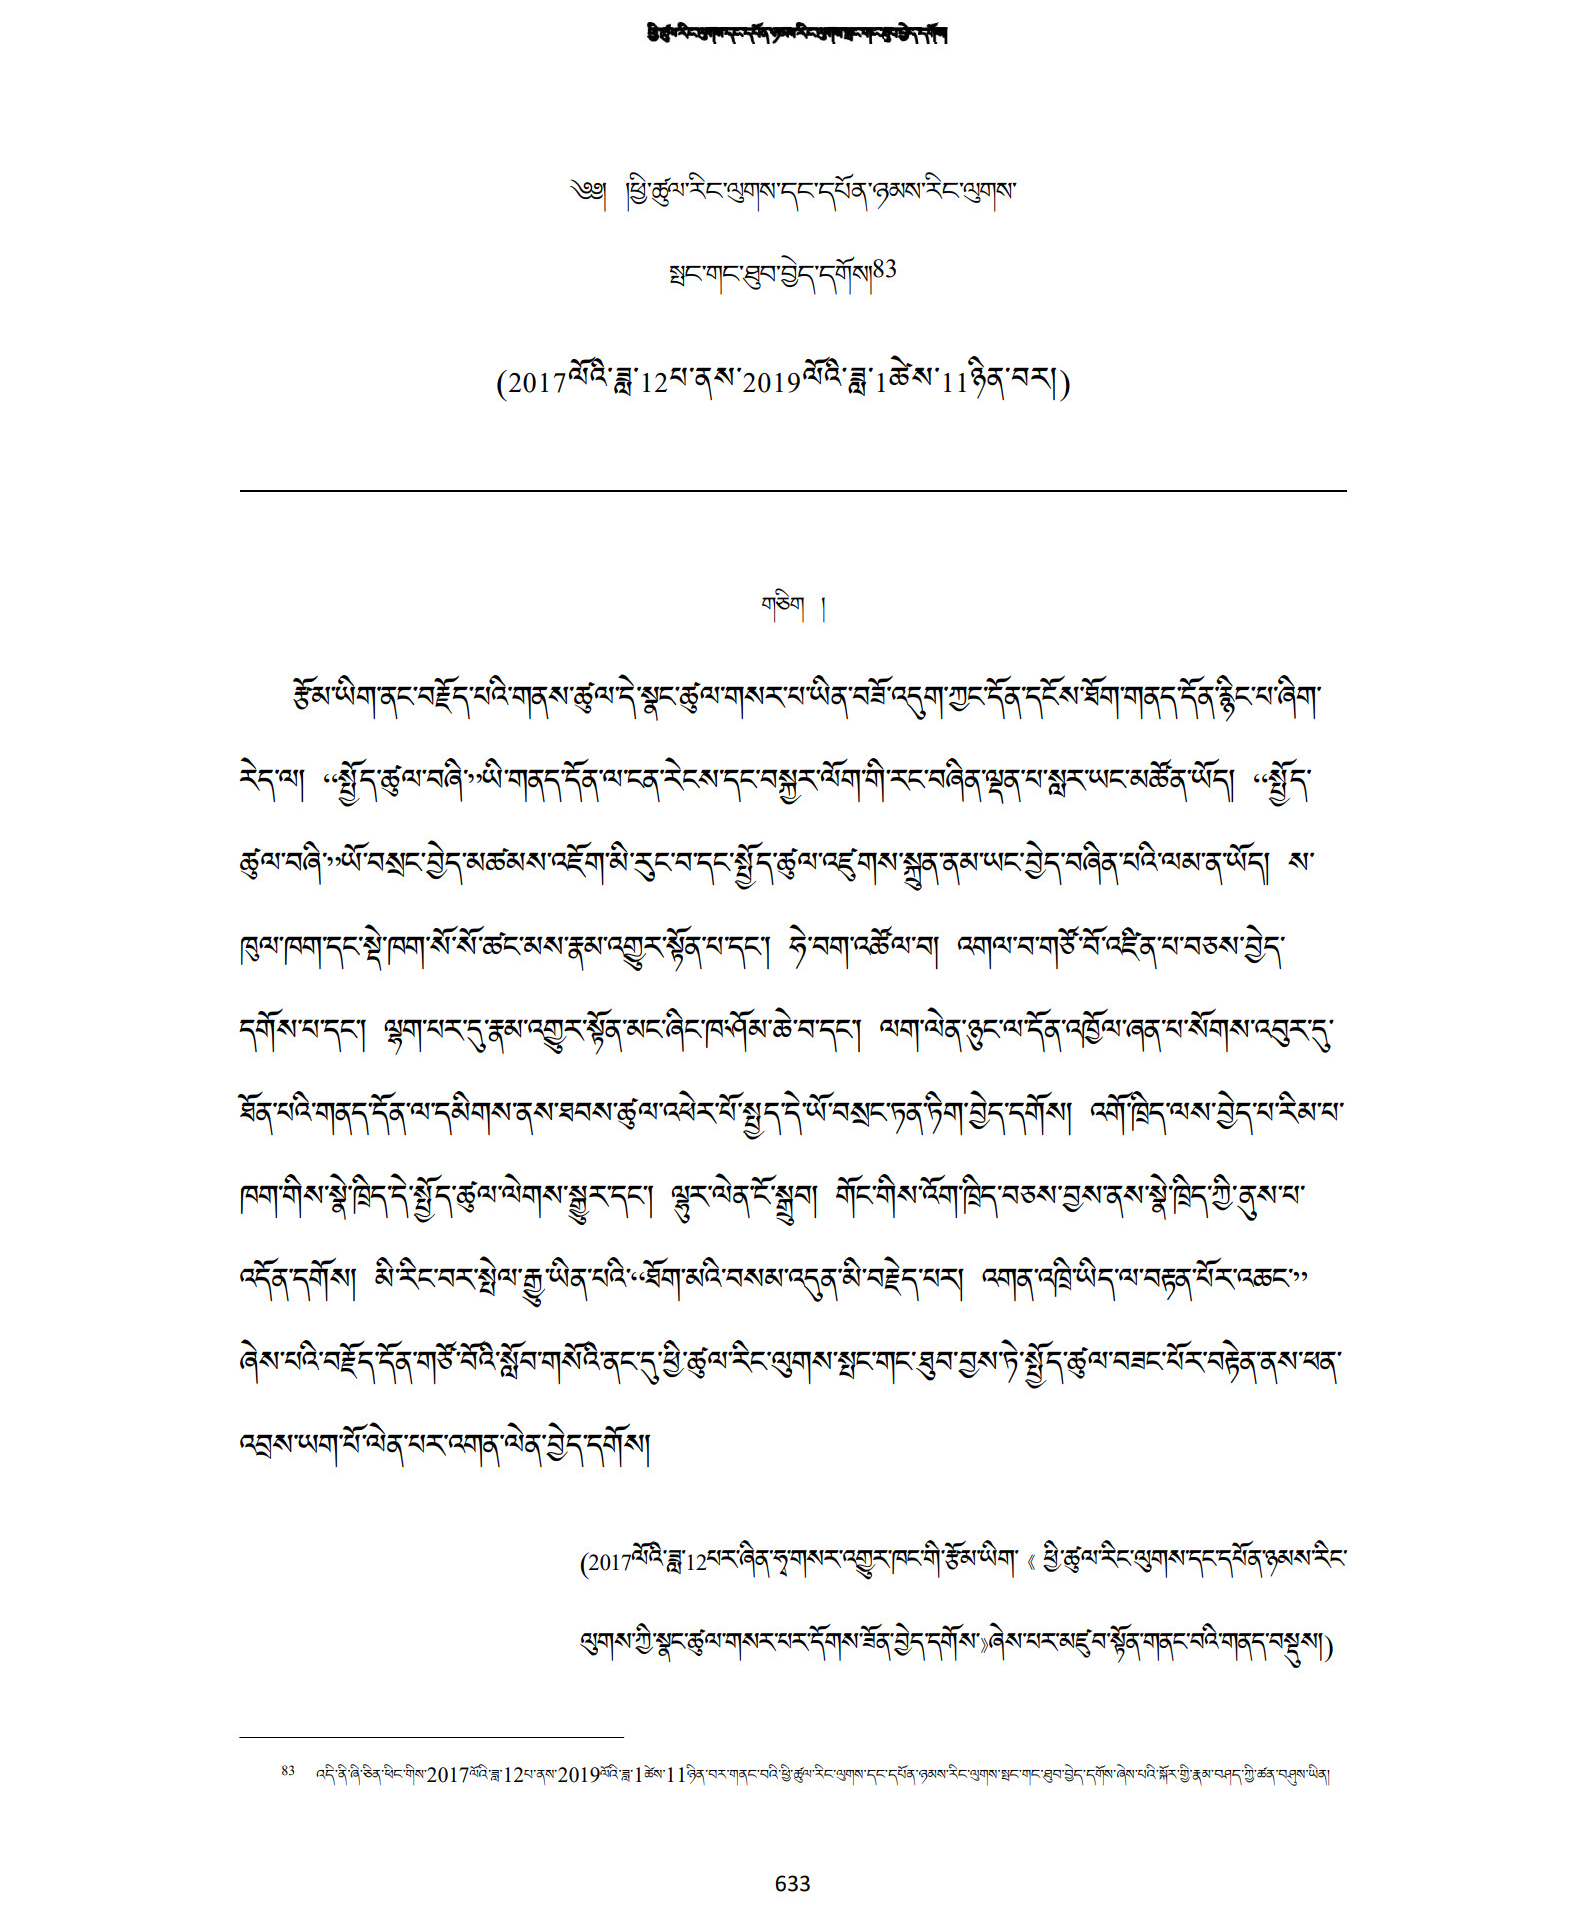 ཕྱི་ཚུལ་རིང་ལུགས་དང་དཔོན་ཉམས་རིང་ལུགས་སྤང་གང་ཐུབ་བྱེད་དགོས།
༄༅།  །ཕྱི་ཚུལ་རིང་ལུགས་དང་དཔོན་ཉམས་རིང་ལུགས་
སྤང་གང་ཐུབ་བྱེད་དགོས།83
(2017ལོའི་ཟླ་12པ་ནས་2019ལོའི་ཟླ་1ཚེས་11ཉིན་བར།)
གཅིག  །
རྩོམ་ཡིག་ནང་བརྗོད་པའི་གནས་ཚུལ་དེ་སྣང་ཚུལ་གསར་པ་ཡིན་བཟོ་འདུག་ཀྱང་དོན་དངོས་ཐོག་གནད་དོན་རྙིང་པ་ཞིག་
རེད་ལ།  “སྤྱོད་ཚུལ་བཞི་”ཡི་གནད་དོན་ལ་ངན་རེངས་དང་བསྐྱར་ལོག་གི་རང་བཞིན་ལྡན་པ་སླར་ཡང་མཚོན་ཡོད།  “སྤྱོད་
ཚུལ་བཞི་”ཡོ་བསྲང་བྱེད་མཚམས་འཇོག་མི་རུང་བ་དང་སྤྱོད་ཚུལ་འཛུགས་སྐྲུན་ནམ་ཡང་བྱེད་བཞིན་པའི་ལམ་ན་ཡོད།  ས་
ཁུལ་ཁག་དང་སྡེ་ཁག་སོ་སོ་ཚང་མས་རྣམ་འགྱུར་སྟོན་པ་དང་།  ཧེ་བག་འཚོལ་བ།  འགལ་བ་གཙོ་བོ་འཛིན་པ་བཅས་བྱེད་
དགོས་པ་དང་།  ལྷག་པར་དུ་རྣམ་འགྱུར་སྟོན་མང་ཞིང་ཁ་ཤོམ་ཆེ་བ་དང་།  ལག་ལེན་ཉུང་ལ་དོན་འཁྱོལ་ཞན་པ་སོགས་འབུར་དུ་
ཐོན་པའི་གནད་དོན་ལ་དམིགས་ནས་ཐབས་ཚུལ་འཕེར་པོ་སྤྱད་དེ་ཡོ་བསྲང་ཏན་ཏིག་བྱེད་དགོས།  འགོ་ཁྲིད་ལས་བྱེད་པ་རིམ་པ་
ཁག་གིས་སྣེ་ཁྲིད་དེ་སྤྱོད་ཚུལ་ལེགས་སྒྱུར་དང་།  ལྷུར་ལེན་ངོ་སྒྲུབ།  གོང་གིས་འོག་ཁྲིད་བཅས་བྱས་ནས་སྣེ་ཁྲིད་ཀྱི་ནུས་པ་
འདོན་དགོས།  མི་རིང་བར་སྤེལ་རྒྱུ་ཡིན་པའི་“ཐོག་མའི་བསམ་འདུན་མི་བརྗེད་པར།  འགན་འཁྲི་ཡིད་ལ་བརྟན་པོར་འཆང་”
ཞེས་པའི་བརྗོད་དོན་གཙོ་བོའི་སློབ་གསོའི་ནང་དུ་ཕྱི་ཚུལ་རིང་ལུགས་སྤང་གང་ཐུབ་བྱས་ཏེ་སྤྱོད་ཚུལ་བཟང་པོར་བརྟེན་ནས་ཕན་
འབྲས་ཡག་པོ་ལེན་པར་འགན་ལེན་བྱེད་དགོས།
(2017ལོའི་ཟླ་12པར་ཞིན་ཧྭ་གསར་འགྱུར་ཁང་གི་རྩོམ་ཡིག་《 ཕྱི་ཚུལ་རིང་ལུགས་དང་དཔོན་ཉམས་རིང་
ལུགས་ཀྱི་སྣང་ཚུལ་གསར་པར་དོགས་ཟོན་བྱེད་དགོས་》ཞེས་པར་མཛུབ་སྟོན་གནང་བའི་གནད་བསྡུས།)
83  འདི་ནི་ཞི་ཅིན་ཕིང་གིས་2017ལོའི་ཟླ་12པ་ནས་2019ལོའི་ཟླ་1ཚེས་11ཉིན་བར་གནང་བའི་ཕྱི་ཚུལ་རིང་ལུགས་དང་དཔོན་ཉམས་རིང་ལུགས་སྤང་གང་ཐུབ་བྱེད་དགོས་ཞེས་པའི་སྐོར་གྱི་རྣམ་བཤད་ཀྱི་ཚན་བཤུས་ཡིན།
633